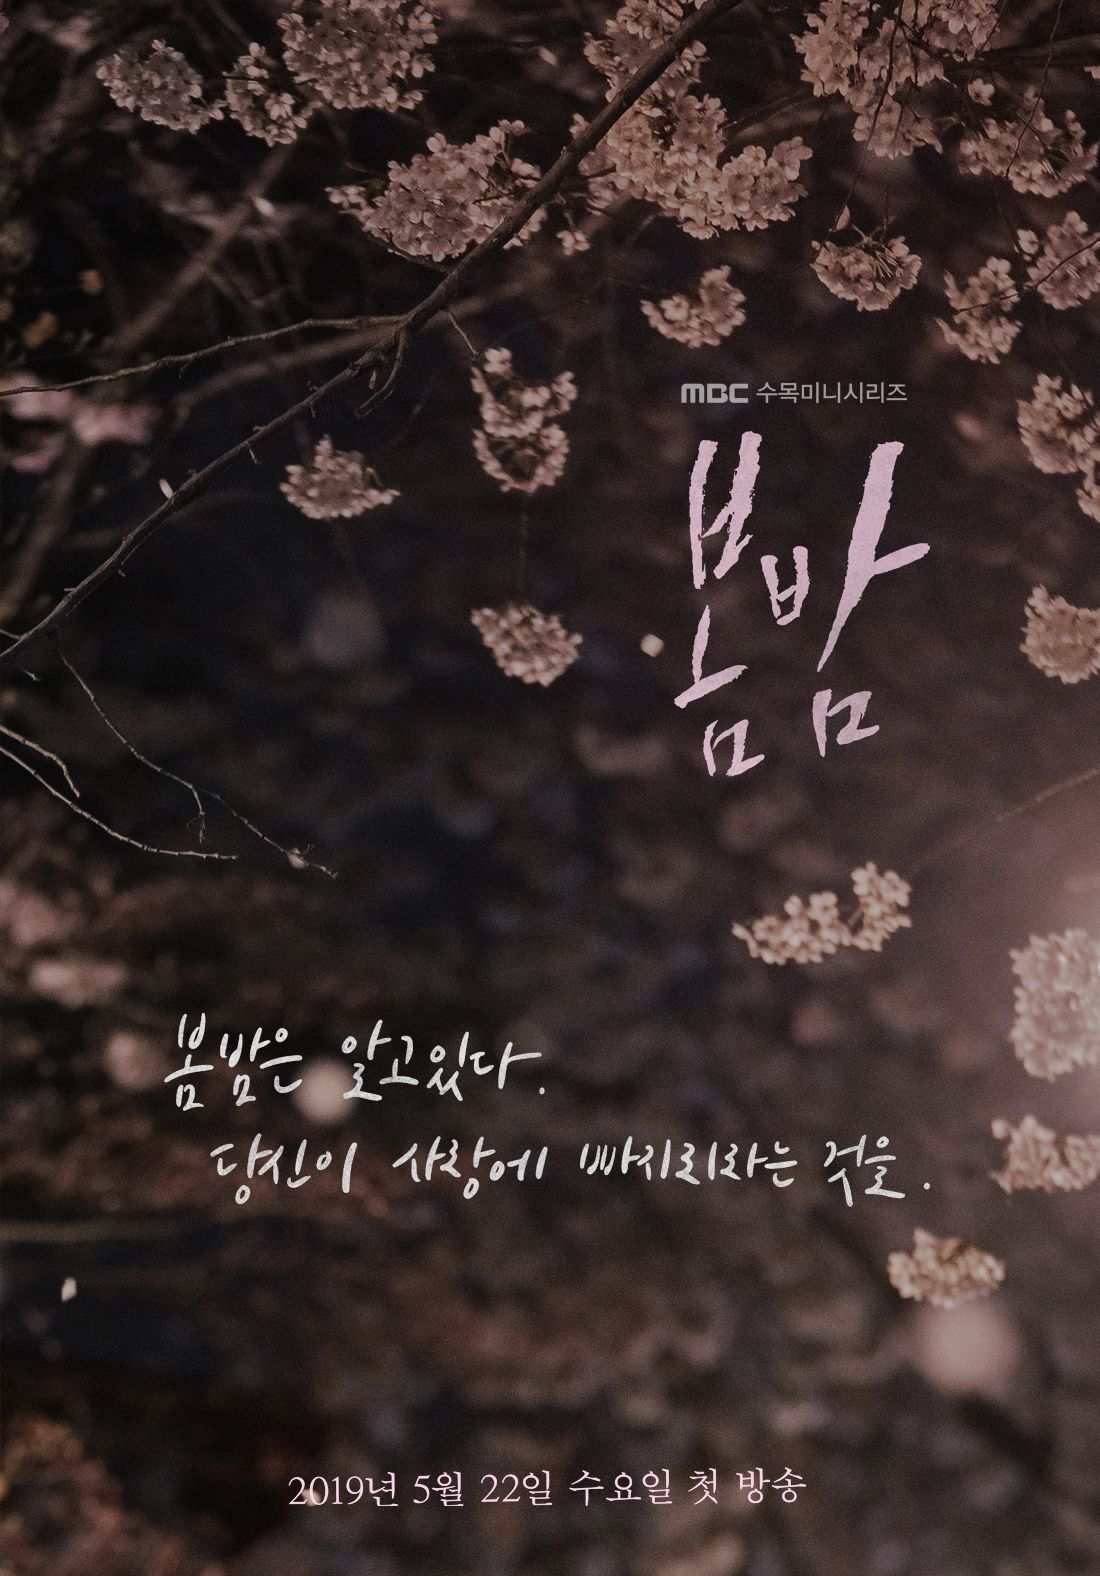 MBC 수목미니시리즈
봄밤
봄밤은 알고있다.
당신이 사랑에 빠지리라는 것을.
2019년 5월 22일 수요일 첫 방송